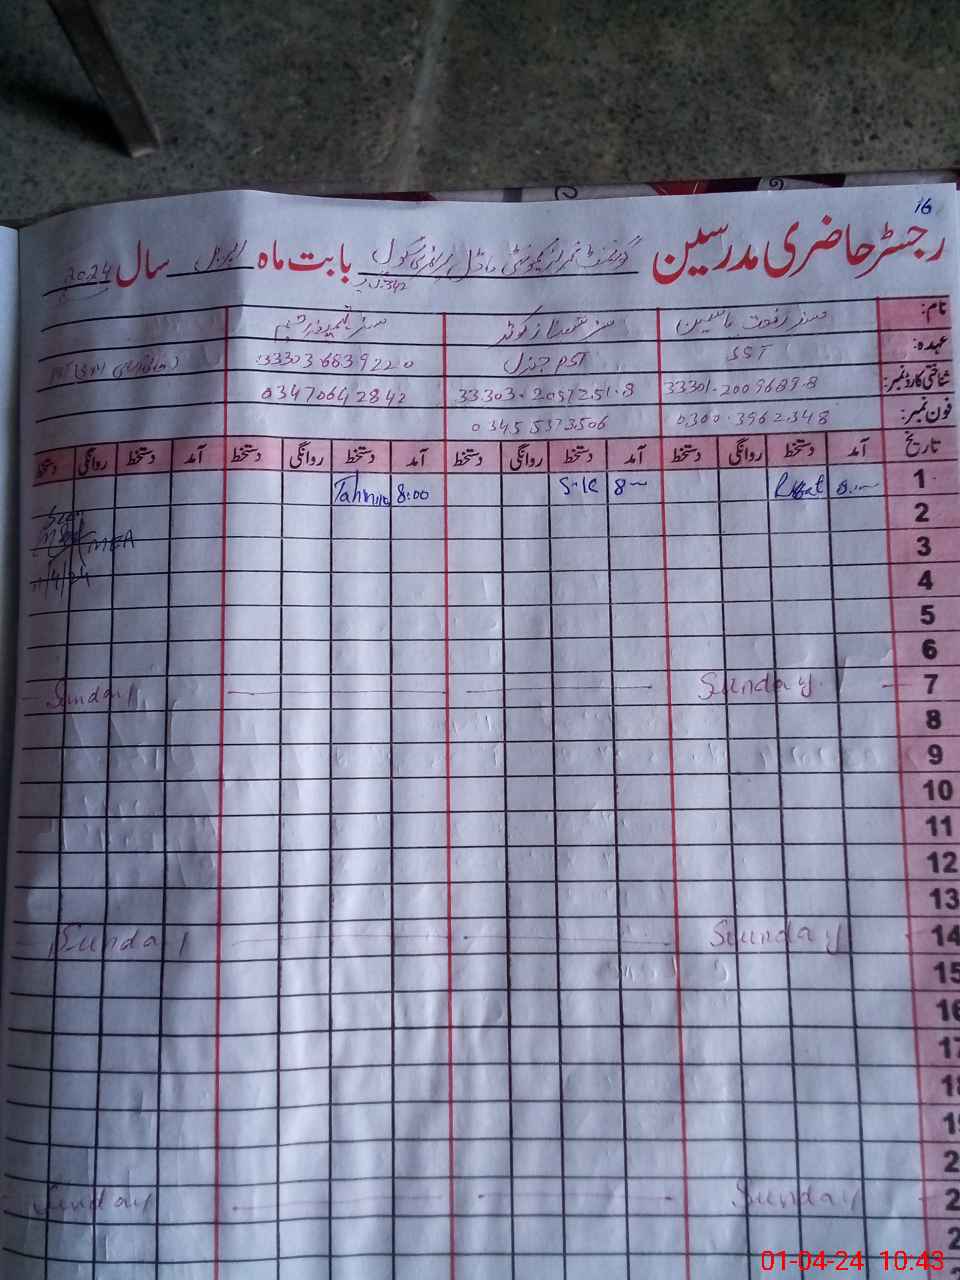 16
رجسٹر حاضری مدرسین گورنمنٹ گرلز کمیونٹی ماڈل پرائمری سکول بابت ماہ اپریل سال 2024
342
نام: مسز رفعت یاسمین مسز شہناز کوثر مسز
عہدہ: SST PST جنرل 33303 6639220
شناختی کارڈ نمبر: 33301-2009689-8 33303-2097251-8 03470642842
فون نمبر: 0300-3962348 03455373506
تاریخ آمد دستخط روانگی دستخط آمد دستخط روانگی دستخط آمد دستخط روانگی دستخط آمد دستخط روانگی دستخط
1 8:00 Rifat 8 8:00
2 Seen
3 MEA
4 1/4/24
5
6
7 Sunday Sunday
8
9
10
11
12
13
14 Sunday Sunday
15
16
17
18
19
2
2 Sunday Sunday
2
01-04-24 10:43